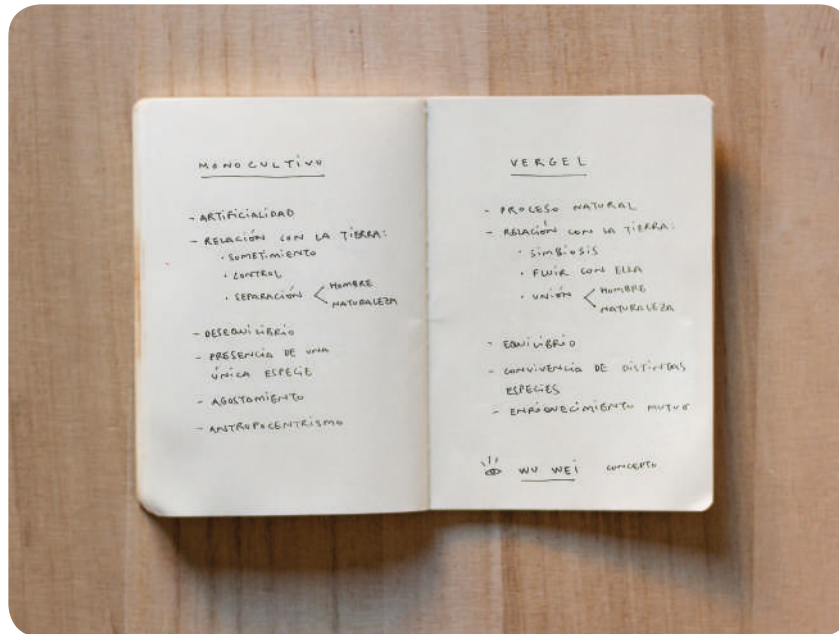 MONOCULTIVO
- ARTIFICIALIDAD
- RELACIÓN CON LA TIERRA:
· SOMETIMIENTO
· CONTROL
· SEPARACIÓN < HOMBRE
NATURALEZA
- DESEQUILIBRIO
- PRESENCIA DE UNA
ÚNICA ESPECIE
- AGOSTAMIENTO
- ANTROPOCENTRISMO
VERGEL
- PROCESO NATURAL
- RELACIÓN CON LA TIERRA:
· SIMBIOSIS
· FLUIR CON ELLA
· UNIÓN < HOMBRE
NATURALEZA
- EQUILIBRIO
- CONVIVENCIA DE DISTINTAS
ESPECIES
- ENRIQUECIMIENTO MUTUO
WU WEI CONCEPTO